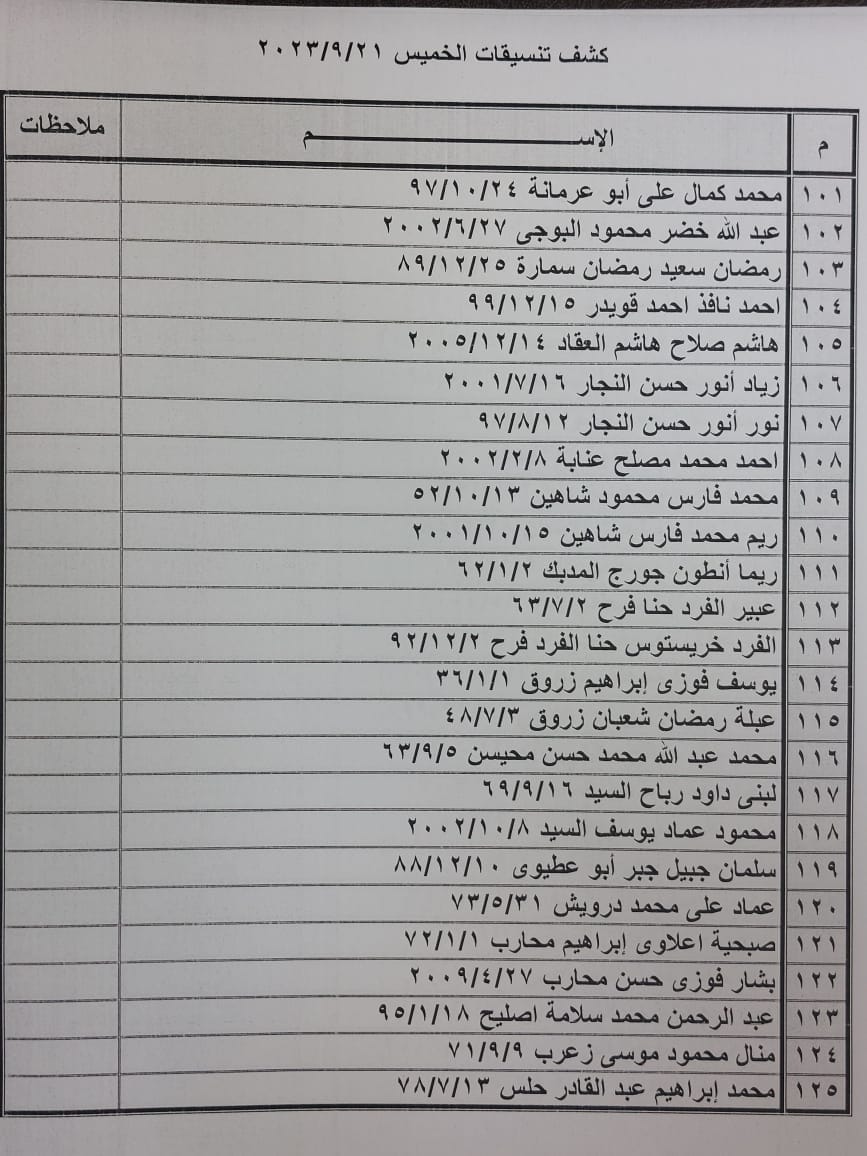 كشف تنسيقات الخميس ٢٠٢٣/٩/٢١
م الإســـــــــــــــــــــم ملاحظات
١٠١ محمد كمال على أبو عرمانة ٩٧/١٠/٢٤
١٠٢ عبد الله خضر محمود البوجى ٢٠٠٢/٦/٢٧
١٠٣ رمضان سعيد رمضان سمارة ٨٩/١٢/٢٥
١٠٤ احمد نافذ احمد قويدر ٩٩/١٢/١٥
١٠٥ هاشم صلاح هاشم العقاد ٢٠٠٥/١٢/١٤
١٠٦ زياد أنور حسن النجار ٢٠٠١/٧/١٦
١٠٧ نور أنور حسن النجار ٩٧/٨/١٢
١٠٨ احمد محمد مصلح عنابة ٢٠٠٢/٢/٨
١٠٩ محمد فارس محمود شاهين ٥٢/١٠/١٣
١١٠ ريم محمد فارس شاهين ٢٠٠١/١٠/١٥
١١١ ريما أنطون جورج المدبك ٦٢/١/٢
١١٢ عبير الفرد حنا فرح ٦٣/٧/٢
١١٣ الفرد خريستوس حنا الفرد فرح ٩٢/١٢/٢
١١٤ يوسف فوزى إبراهيم زروق ٣٦/١/١
١١٥ عبلة رمضان شعبان زروق ٤٨/٧/٣
١١٦ محمد عبد الله محمد حسن محيسن ٦٣/٩/٥
١١٧ لبنى داود رباح السيد ٦٩/٩/١٦
١١٨ محمود عماد يوسف السيد ٢٠٠٢/١٠/٨
١١٩ سلمان جبيل جبر أبو عطيوى ٨٨/١٢/١٠
١٢٠ عماد على محمد درويش ٧٣/٥/٣١
١٢١ صبحية اعلاوى إبراهيم محارب ٧٢/١/١
١٢٢ بشار فوزى حسن محارب ٢٠٠٩/٤/٢٧
١٢٣ عبد الرحمن محمد سلامة اصليح ٩٥/١/١٨
١٢٤ منال محمود موسى زعرب ٧١/٩/٩
١٢٥ محمد إبراهيم عبد القادر حلس ٧٨/٧/١٣